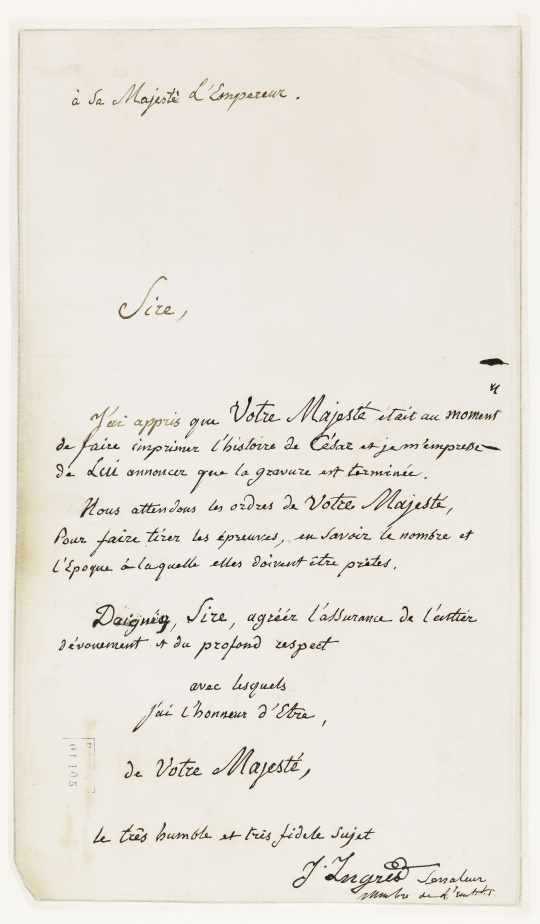 à Sa Majesté L'Empereur.
Sire,
J'ai appris que Votre Majesté était au moment
de faire imprimer l'histoire de César et je m'empresse
de Lui annoncer que la gravure est terminée.
Nous attendons les ordres de Votre Majesté,
Pour faire tirer les épreuves, en savoir le nombre et
l'Epoque à laquelle elles doivent être prètes.
Daignéz, Sire, agréér l'assurance de l'entier
dévouement et du profond respect
avec lesquels
j'ai l'honneur d'Etre,
de Votre Majesté,
le très humble et très fidele sujet
J. Ingres Senateur
membre de L'institut
01105